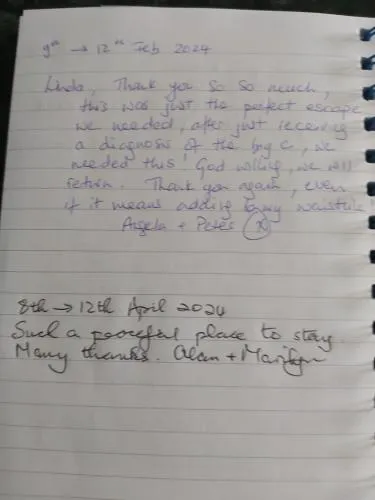 9th → 12th Feb 2024
Linda, Thank you so so much,
this was just the perfect escape
we needed, after just receiving
a diagnosis of the big C, we
needed this! God willing, we will
return. Thank you again, even
if it means adding to my waistline
Angela + Peter x
8th → 12th April 2024
Such a peaceful place to stay.
Many thanks. Alan + Marilyn